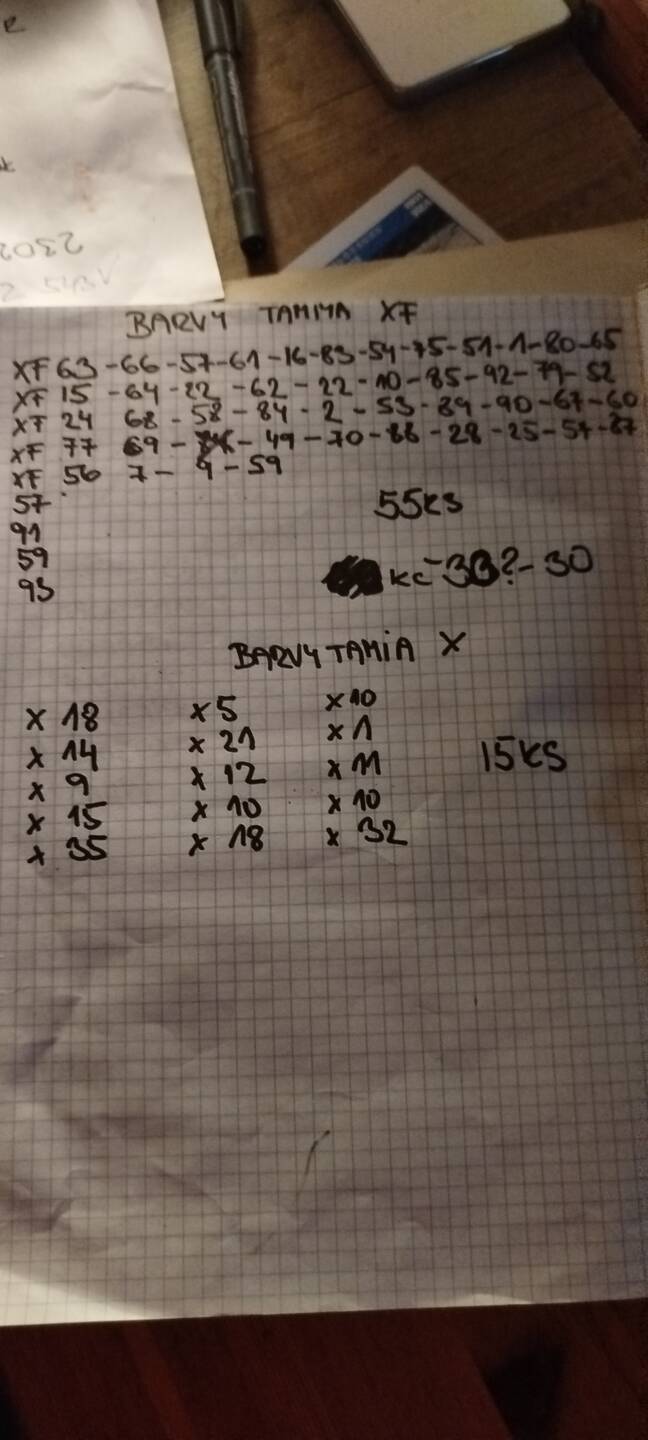 2302
BARVY TAMIYA XF
XF 63 - 66 - 57 - 61 - 16 - 83 - 54 - 75 - 51 - 1 - 80 - 65
XF 15 - 64 - 22 - 62 - 22 - 10 - 85 - 92 - 79 - 52
XF 24 68 - 58 - 84 - 2 - 53 - 89 - 90 - 67 - 60
XF 77 69 - 49 - 70 - 88 - 28 - 25 - 57 - 87
XF 56 7 - 9 - 59
57
91
59
93
55ks
kč - 30? - 30
BARVY TAMIA X
X 18 X 5 X 10
X 14 X 21 X 1
X 9 X 12 X 11
X 15 X 10 X 10
X 35 X 18 X 32
15KS